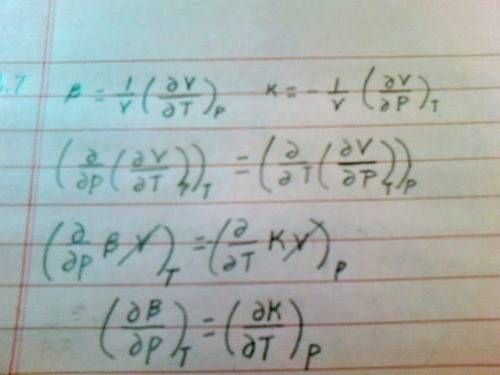 β = 1/V (∂V/∂T)_P    K = - 1/V (∂V/∂P)_T
(∂/∂P (∂V/∂T))_T = (∂/∂T (∂V/∂P)_T)_P
(∂/∂P β V)_T = (∂/∂T K V)_P
(∂β/∂P)_T = (∂K/∂T)_P